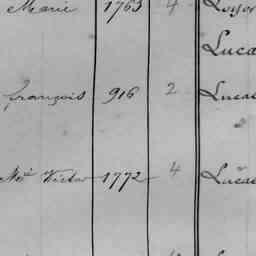 Marie 1763 4
Luca
françois 916 2 Lucas
Victor 1772 4 Lucas